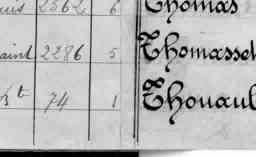 uis 2562 6 Thomas
aint 2286 5 Thomasset
Bt 74 1 Thouaul